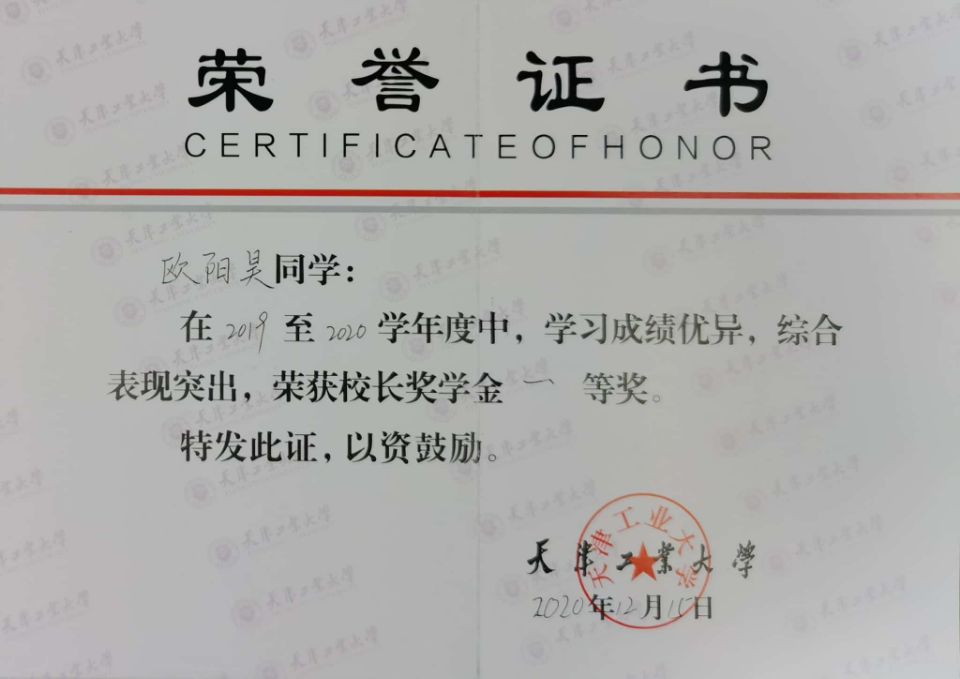 荣誉证书
CERTIFICATEOFHONOR
欧阳昊同学：
在2019至2020学年度中，学习成绩优异，综合
表现突出，荣获校长奖学金一等奖。
特发此证，以资鼓励。
天津工业大学
天津工業大學
2020年12月15日